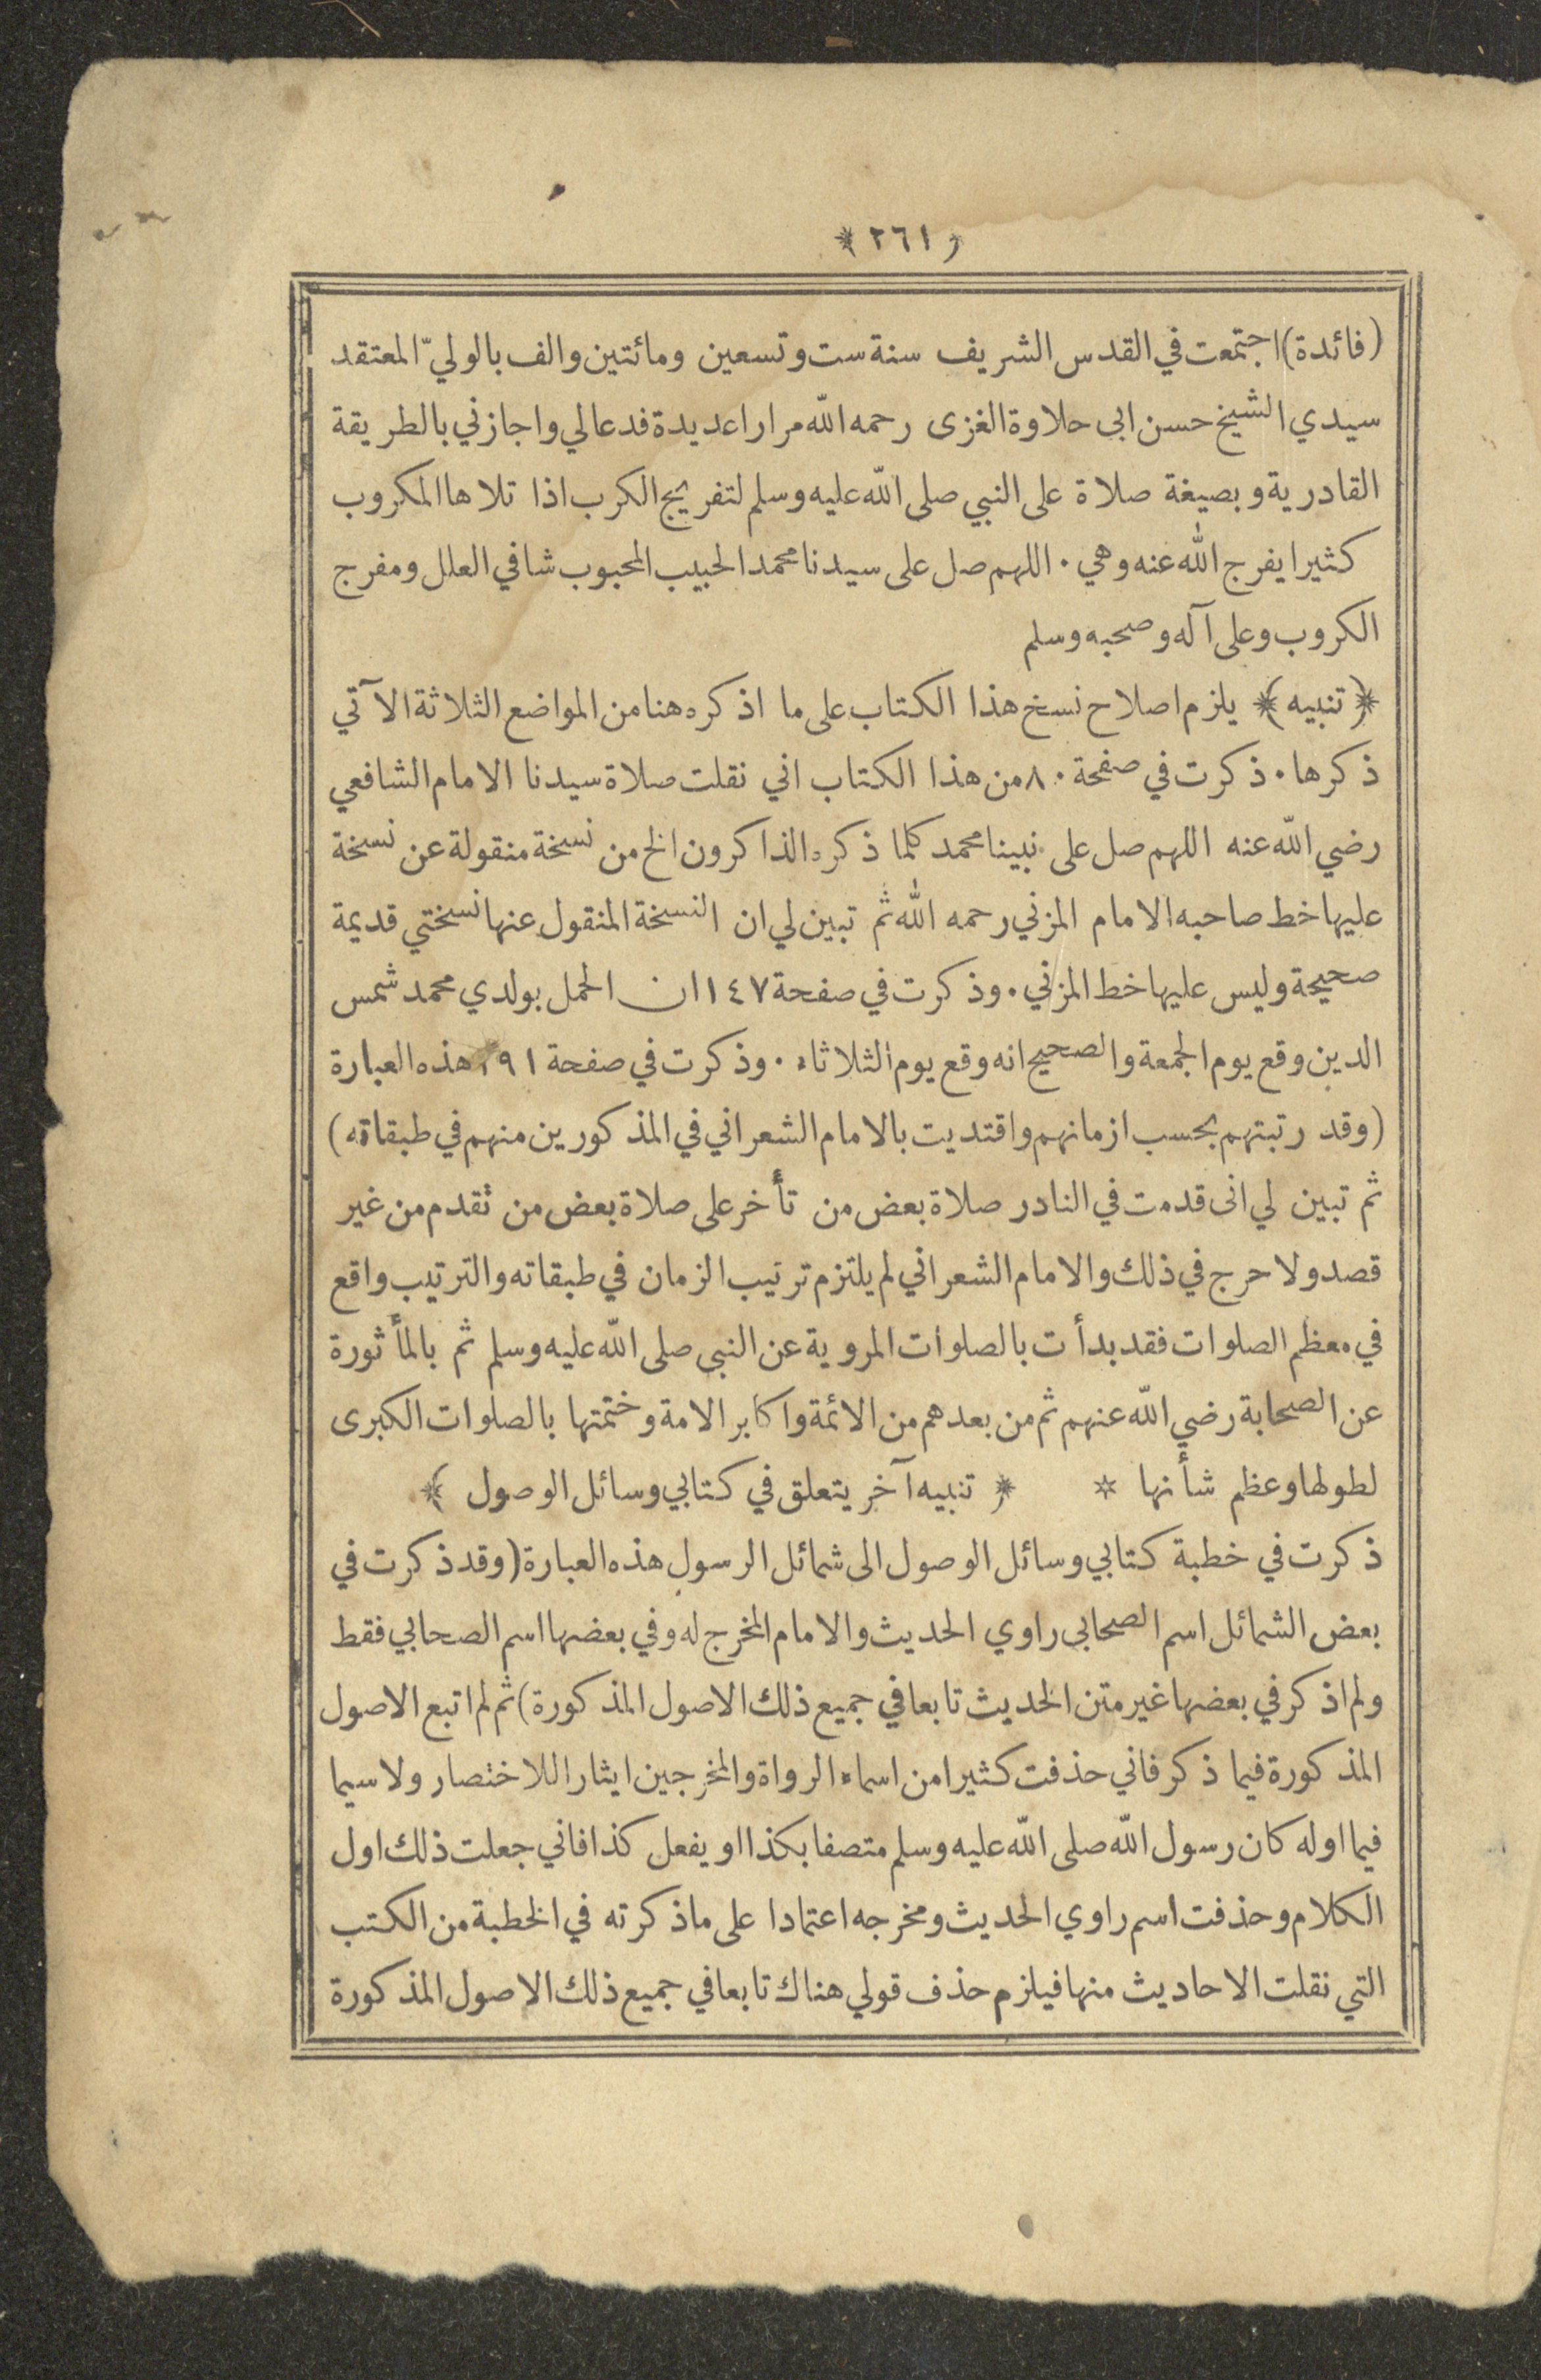 ﴿ ٢٦١ ﴾
(فائدة) اجتمعت في القدس الشريف سنة ست وتسعين ومائتين والف بالوليّ المعتقد
سيدي الشيخ حسن ابى حلاوة الغزى رحمه الله مرارا عديدة فدعا لي واجازني بالطريقة
القادرية وبصيغة صلاة على النبي صلى الله عليه وسلم لتفريج الكرب اذا تلاها المكروب
كثيرا يفرج الله عنه وهي ٠ اللهم صل على سيدنا محمد الحبيب المحبوب شافي العلل ومفرج
الكروب وعلى آله وصحبه وسلم
﴿ تنبيه ﴾ يلزم اصلاح نسخ هذا الكتاب على ما اذكره هنا من المواضع الثلاثة الآتي
ذكرها ٠ ذكرت في صفحة ٨٠ من هذا الكتاب اني نقلت صلاة سيدنا الامام الشافعي
رضي الله عنه اللهم صل على نبينا محمد كلما ذكره الذاكرون الخ من نسخة منقولة عن نسخة
عليها خط صاحبه الامام المزني رحمه الله ثم تبين لي ان النسخة المنقول عنها نسختي قديمة
صحيحة وليس عليها خط المزني ٠ وذكرت في صفحة ١٤٧ ان الحمل بولدي محمد شمس
الدين وقع يوم الجمعة والصحيح انه وقع يوم الثلاثاء ٠ وذكرت في صفحة ١٩١ هذه العبارة
(وقد رتبتهم بحسب ازمانهم واقتديت بالامام الشعراني في المذكورين منهم في طبقاته)
ثم تبين لي انى قدمت في النادر صلاة بعض من تأخر على صلاة بعض من تقدم من غير
قصد ولا حرج في ذلك والامام الشعراني لم يلتزم ترتيب الزمان في طبقاته والترتيب واقع
في معظم الصلوات فقد بدأت بالصلوات المروية عن النبي صلى الله عليه وسلم ثم بالمأثورة
عن الصحابة رضي الله عنهم ثم من بعدهم من الائمة واكابر الامة وختمتها بالصلوات الكبرى
لطولها وعظم شأنها * ﴿ تنبيه آخر يتعلق في كتابي وسائل الوصول ﴾
ذكرت في خطبة كتابي وسائل الوصول الى شمائل الرسول هذه العبارة (وقد ذكرت في
بعض الشمائل اسم الصحابى راوي الحديث والامام المخرج له وفي بعضها اسم الصحابي فقط
ولم اذكر في بعضها غير متن الحديث تابعا في جميع ذلك الاصول المذكورة) ثم لم اتبع الاصول
المذكورة فيما ذكر فاني حذفت كثيرا من اسماء الرواة والمخرجين ايثارا للاختصار ولا سيما
فيما اوله كان رسول الله صلى الله عليه وسلم متصفا بكذا او يفعل كذا فاني جعلت ذلك اول
الكلام وحذفت اسم راوي الحديث ومخرجه اعتمادا على ما ذكرته في الخطبة من الكتب
التي نقلت الاحاديث منها فيلزم حذف قولي هناك تابعا في جميع ذلك الاصول المذكورة